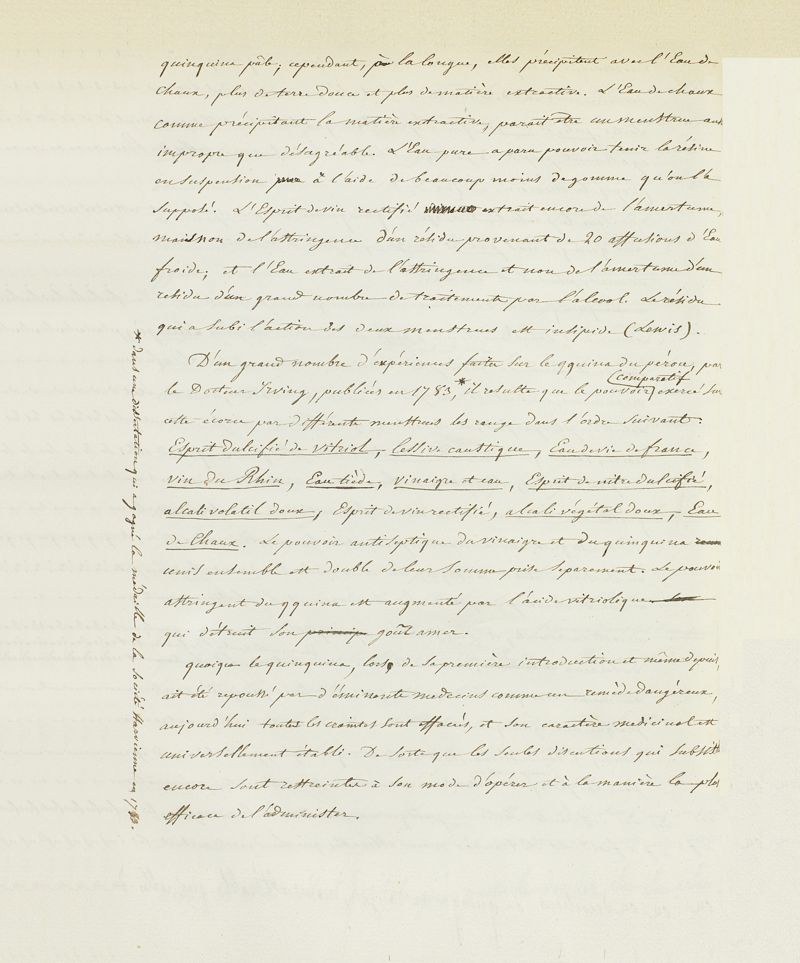 quinquina pâle; cependant, à la longue, elles précipitent avec l'Eau de
chaux, plus de terre douce et plus de matière extractive. L'Eau de chaux
comme précipitant la matière extractive, parait être un menstrue aussi
impropre que désagréable. L'Eau pure a paru pouvoir tenir la résine
en suspension à l'aide de beaucoup moins de gomme qu'on l'a
supposé. L'Esprit de vin rectifié extrait encore de l'amertume,
mais non de l'astringence d'un résidu provenant de 20 affusions d'Eau
froide; et l'Eau extrait de l'astringence et non de l'amertume d'un
résidu d'un grand nombre de traitements par l'alcool. Le résidu
qui a subi l'action des deux menstrues est insipide (Lewis).
D'un grand nombre d'expériences faites sur le qquina du pérou, par
le Docteur Irving, publiées en 1783,* il resulte que le pouvoir (comparatif) exercé sur
cette écorce par différents menstrues les range dans l'ordre suivant:
Esprit dulcifié de vitriol, lessive caustique, Eau de vie de france,
vin du Rhin, Eau tiède, vinaigre et eau, Esprit de nitre dulcifié,
alcali volatil doux, Esprit de vin rectifié, alcali végétal doux, Eau
de Chaux. Le pouvoir antiseptique du vinaigre et du quinquina
unis ensemble est double de leur somme prise separement. Le pouvoir
astringent du qquina est augmenté par l'acide vitriolique
qui détruit son principe goût amer.
quoique le quinquina, lors de sa première introduction et même depuis,
ait été repoussé par d'éminents medecins comme un remède dangéreux,
aujourd'hui toutes les craintes sont effacés, et son caractère medicinal est
universellement établi. De sorte que les seules discutions qui subsiste
encore sont restreintes à son mode d'opérer et à la manière la plus
efficace de l'administer.
* dans une dissertation qui a gagné la médaille de la Société Harvienne en 1783.